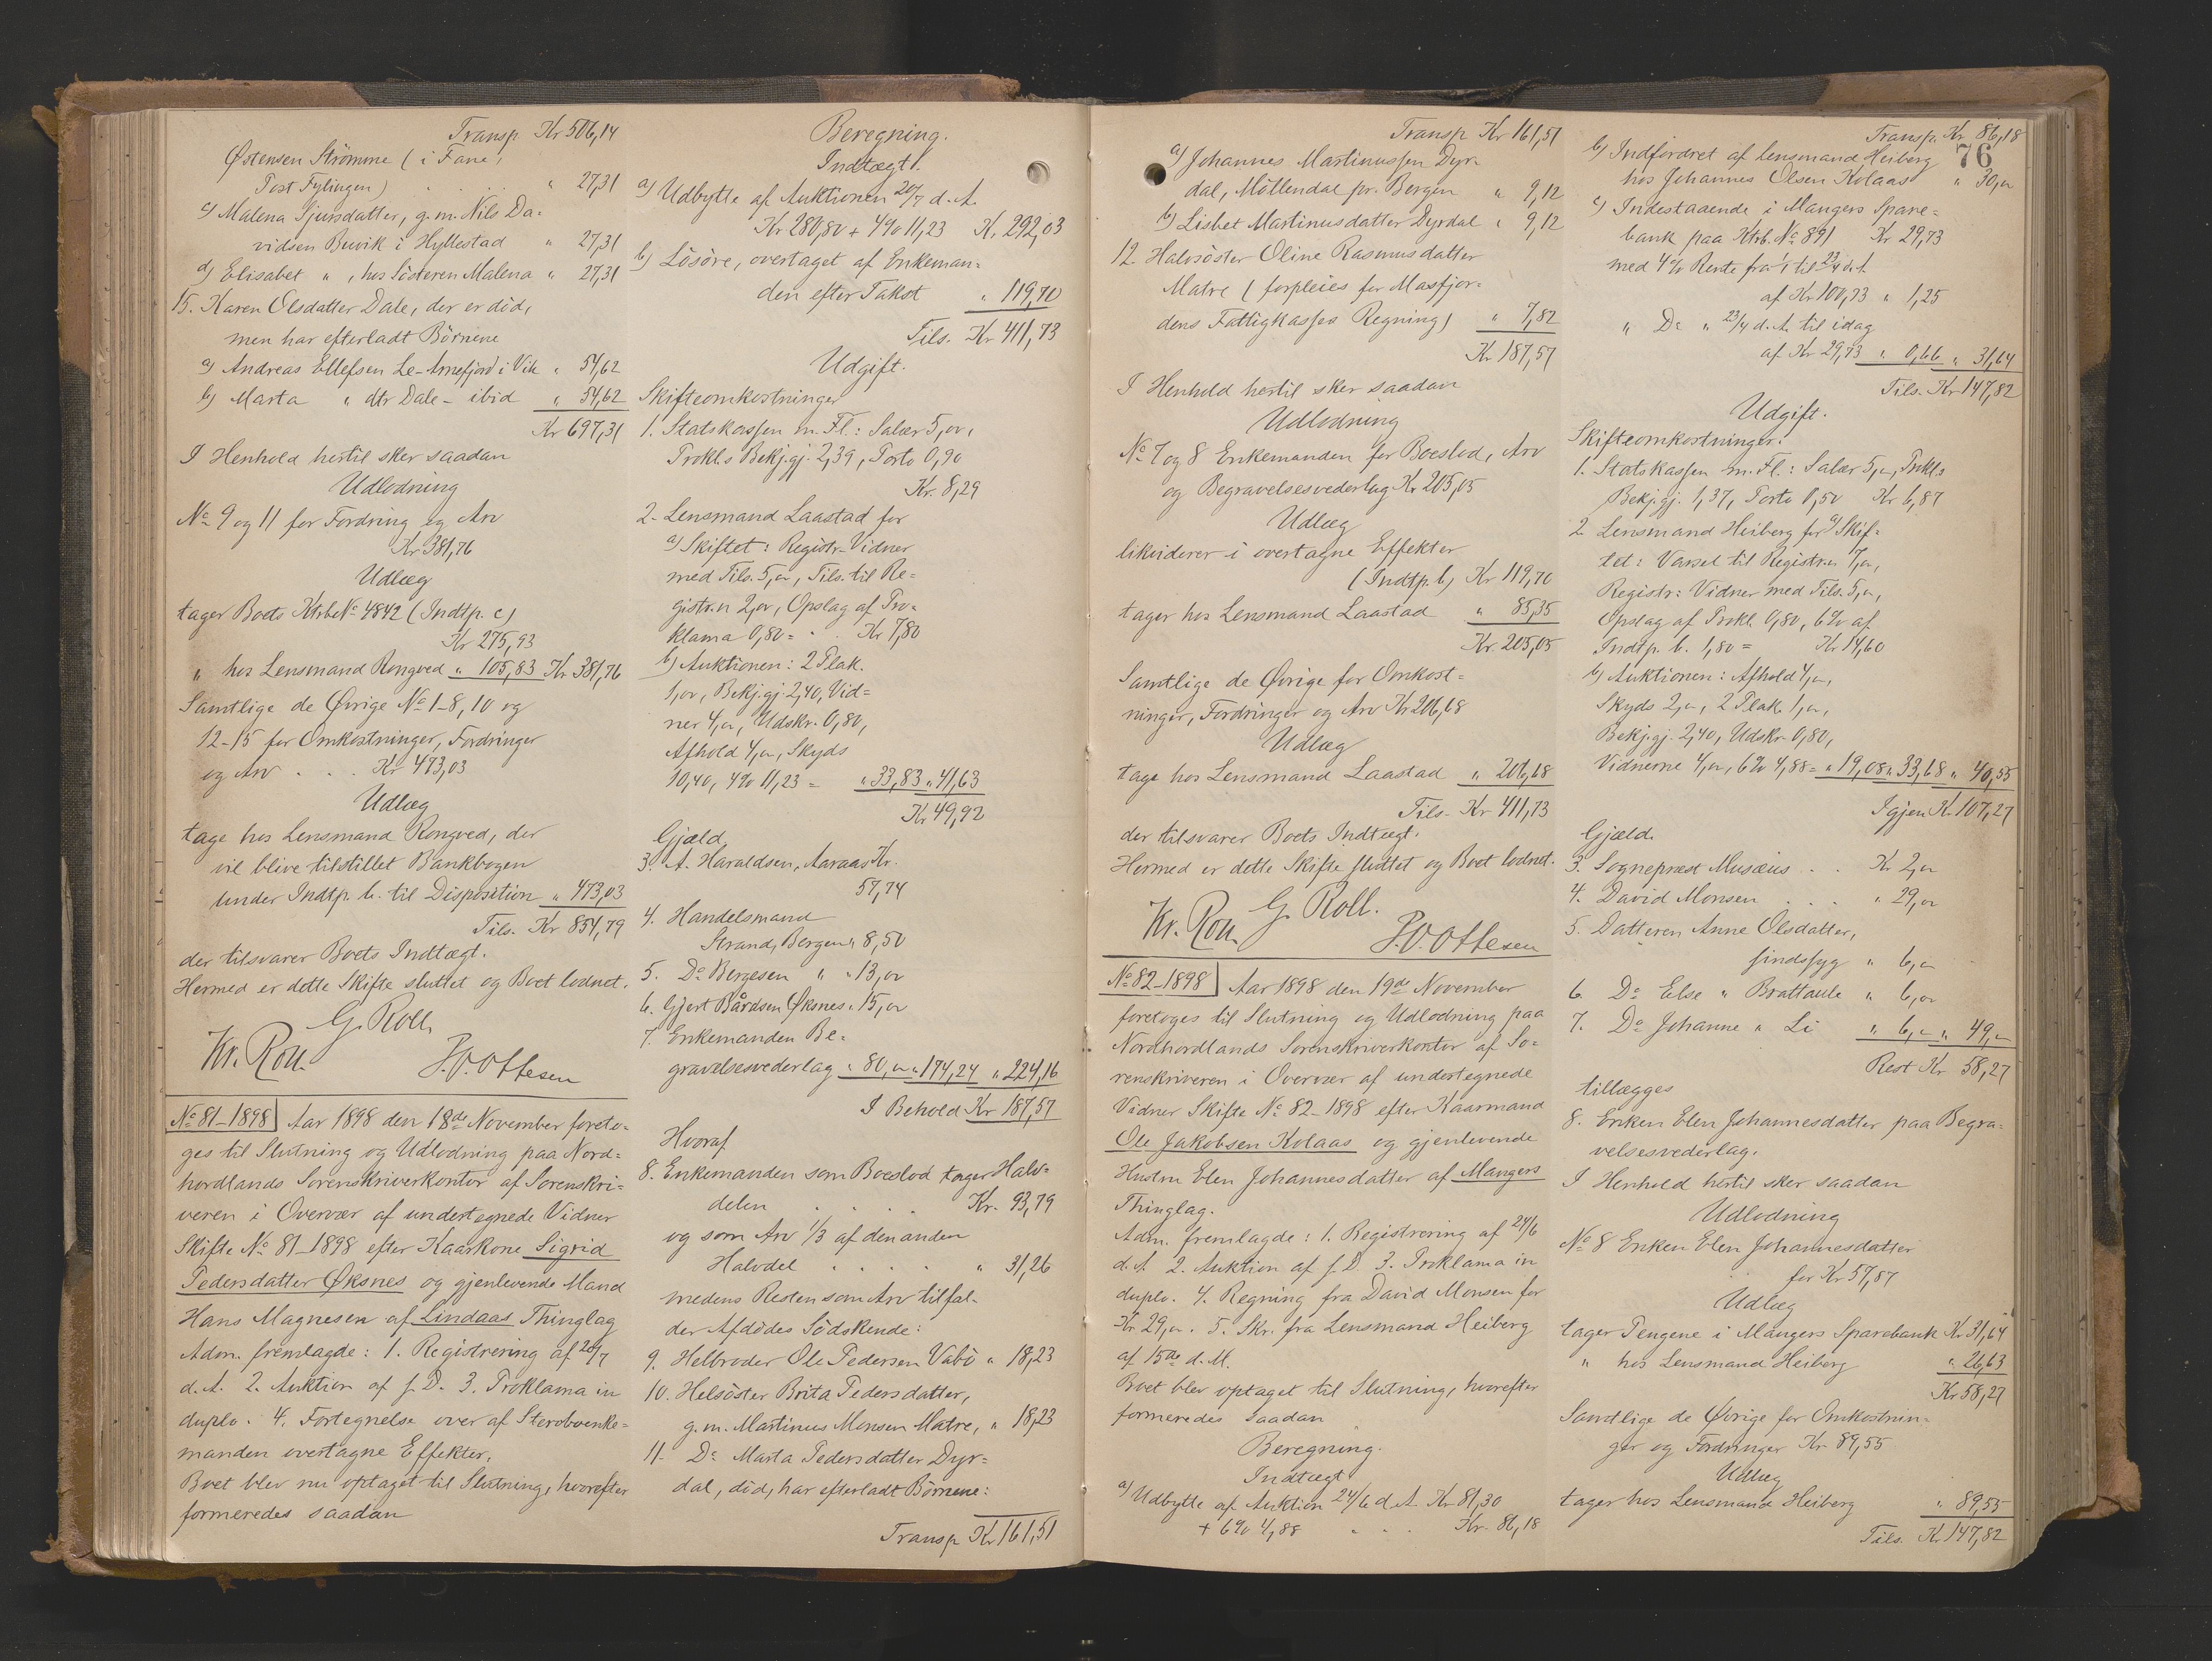 Transp. Kr 506,14
Østensen Strömme (i Fane,
Post Fylingen) . . . " 27,31
c) Malena Sjursdatter, g.m. Nils Da=
vidsen Buvik i Hyllestad " 27,31
d) Elisabet " , hos Södteren Malena " 27,31
15. Karen Olsdatter Dale, der er död,
men har efterladt Börnene
a) Andreas Ellefsen Le-Arnefjord i Vik " 54,62
b) Marta " dtr Dale - ibid " 54,62
Kr 697,31
I Henhold hertil sker saadan
Udlodning
No 9 og 11 for Fordring og Arv
Kr 381,76
Udlæg
tager Boets Ktrb. No 4842 (Indtp. c)
Kr 275,93
" hos Lensmand Rongved " 105,83 Kr 381,76
Samtlige de Øvrige No 1-8, 10 og
12-15 for Omkostninger, Fordringer
og Arv . . . Kr 473,03
Udlæg
tage hos Lensmand Rongved, der
vil blive tilstillet Bankbogen
under Indtp. b. til Disposition " 473,03
Tils. Kr 854,79
der tilsvarer Boets Indtægt.
Hermed er dette Skifte sluttet og Boet lodnet.
G. Roll
Kr. Roll. P.O. Ottesen
No 81-1898 Aar 1898 den 18de November foreto=
ges til Slutning og Udlodning paa Nord=
hordlands Sorenskriverkontor af Sorenskri=
veren i Overvær af undertegnede Vidner
Skifte No 81-1898 efter Kaarkone Sigrid
Pedersdatter Øksnes og gjenlevende Mand
Hans Magnesen af Lindaas Thinglag
Adm. fremlagde: 1. Registrering af 20/7
d.A. 2. Auktion af s.D. 3. Proklama in
duplo. 4. Fortegnelse over af Stervboenke=
manden overtagne Effekter.
Boet blev nu optaget til Slutning, hvorefter
formeredes saadan
Beregning.
Indtægt.
a) Udbytte af Auktionen 20/7 d.A.
Kr 280,80 + 4% 11,23 Kr. 292,03
b) Lösöre, overtaget af Enkeman=
den efter Takst " 119,70
Tils. Kr 411,73
Udgift.
Skifteomkostninger
1. Statskassen m. Fl.: Salær 5,00,
Prokl.s Bekj.gj. 2,39, Porto 0,90
Kr. 8,29
2. Lensmand Laastad for
a) Skiftet: Registr. Vidner
med Tils. 5,00, Tils. til Re=
gistr.n 2,00, Opslag af Pro=
klama 0,80 = . Kr 7,80
b) Auktionen: 2 Plak.
1,00, Bekj.gj. 2,40, Vid=
ner 4,00, Udskr. 0,80,
Afhold 4,00, Skyds
10,40, 4% 11,23 = " 33,83 " 41,63
Kr. 49,92
Gjæld.
3. A. Haraldsen, Aaraas Kr.
57,74
4. Handelsmand
Strand, Bergen " 8,50
5. Do Bergesen " " 13,00
6. Gjert Bårdsen Øksnes " 15,00
7. Enkemanden Be=
gravelsesvederlag " 80,00 " 174,24 " 224,16
I Behold Kr 187,57
Hvoraf
8. Enkemanden som Boeslod tager Halv=
delen . . . . Kr. 93,79
og som Arv 1/3 af den anden
Halvdel . . . . " 31,26
medens Resten som Arv tilfal=
der Afdödes Södskende:
9. Helbroder Ole Pedersen Vabö " 18,23
10. Helsöster Brita Pedersdatter,
g.m. Martinus Monsen Matre, " 18,23
11. Do Marta Pedersdatter Dyr=
dal, död, har efterladt Börnene:
Transp. Kr 161,51
Transp. Kr 161,51
a) Johannes Martinussen Dyr=
dal, Möllendal pr. Bergen " 9,12
b) Lisbet Martinusdatter Dyrdal " 9,12
12. Halvsöster Oline Rasmusdatter
Matre (forpleies for Masfjor=
dens Fattigkasses Regning) " 7,82
Kr. 187,57
I Henhold hertil sker saadan
Udlodning
No 7 og 8 Enkemanden for Boeslod, Arv
og Begravelsesvederlag Kr 205,05
Udlæg
likviderer i overtagne Effekter
(Indtp. b) Kr 119,70
tager hos Lensmand Laastad " 85,35
Kr. 205,05
Samtlige de Øvrige for Omkost=
ninger, Fordringer og Arv Kr 206,68
Udlæg
tage hos Lensmand Laastad " 206,68
Tils. Kr 411,73
der tilsvarer Boets Indtægt.
Hermed er dette Skifte sluttet og Boet lodnet.
Kr. Roll. G. Roll.
P.O. Ottesen
No 82-1898 Aar 1898 den 19de November
foretoges til Slutning og Udlodning paa
Nordhordlands Sorenskriverkontor af So=
renskriveren i Overvær af undertegnede
Vidner Skifte No 82-1898 efter Kaarmand
Ole Jakobsen Kolaas og gjenlevende
Hustru Elen Johannesdatter af Mangers
Thinglag.
Adm. fremlagde: 1. Registrering af 24/6
d.A. 2. Auktion af s.D. 3. Proklama in
duplo. 4. Regning fra David Monsen for
Kr. 29,00. 5. Skr. fra Lensmand Heiberg
af 15de d.M.
Boet blev optaget til Slutning, hvorefter
formeredes saadan
Beregning.
Indtægt
a) Udbytte af Auktion 24/6 d.A. Kr 81,30
+ 6% 4,88 " . . Kr. 86,18
Transp. Kr 86,18
76
b) Indfordret af Lensmand Heiberg
hos Johannes Olsen Kolaas " 30,00
c) Indestaaende i Mangers Spare=
bank paa Ktrb. No 891 Kr 29,73
med 4% Rente fra 1/1 til 23/4 d.A.
af Kr 100,73 " 1,25
" Do " 23/4 d.A. til idag
af Kr 29,73 " 0,66 " 31,64
Tils. Kr 147,82
Udgift.
Skifteomkostninger.
1. Statskassen m. Fl.: Salær 5,00, Prokl.s
Bekj.gj. 1,37, Porto 0,50 Kr 6,87
2. Lensmand Heiberg for a) Skif=
tet: Varsel til Registr.en 1,00,
Registr.: Vidner med Tils. 5,00,
Opslag af Prokl. 0,80, 6% af
Indtp. b. 1,80 = Kr 14,60
b) Auktionen: Afhold 4,00,
Skyds 2,00, 2 Plak. 1,00,
Bekj.gj. 2,40, Udskr. 0,80,
Vidnerne 4,00, 6% 4,88 = " 19,08 " 33,68 " 40,55
Igjen Kr. 107,27
Gjæld.
3. Sogneprest Musæus . . Kr 2,00
4. David Monsen . . . " 29,00
5. Datteren Anne Olsdatter,
sindssyg " 6,00
6. Do Else " Brattaule " 6,00
7. Do Johanne " Li " 6,00 " 49,00
Rest Kr 58,27
tillægges
8. Enken Elen Johannesdatter paa Begra=
velsesvederlag.
I Henhold hertil sker saadan
Udlodning
No 8 Enken Elen Johannesdatter
for Kr 57,87
Udlæg
tager Pengene i Mangers Sparebank Kr 31,64
" hos Lensmand Heiberg " 26,63
Kr 58,27
Samtlige de Øvrige for Omkostnin=
ger og Fordringer Kr 89,55
Udlæg
tager hos Lensmand Heiberg " 89,55
Tils. Kr 147,82